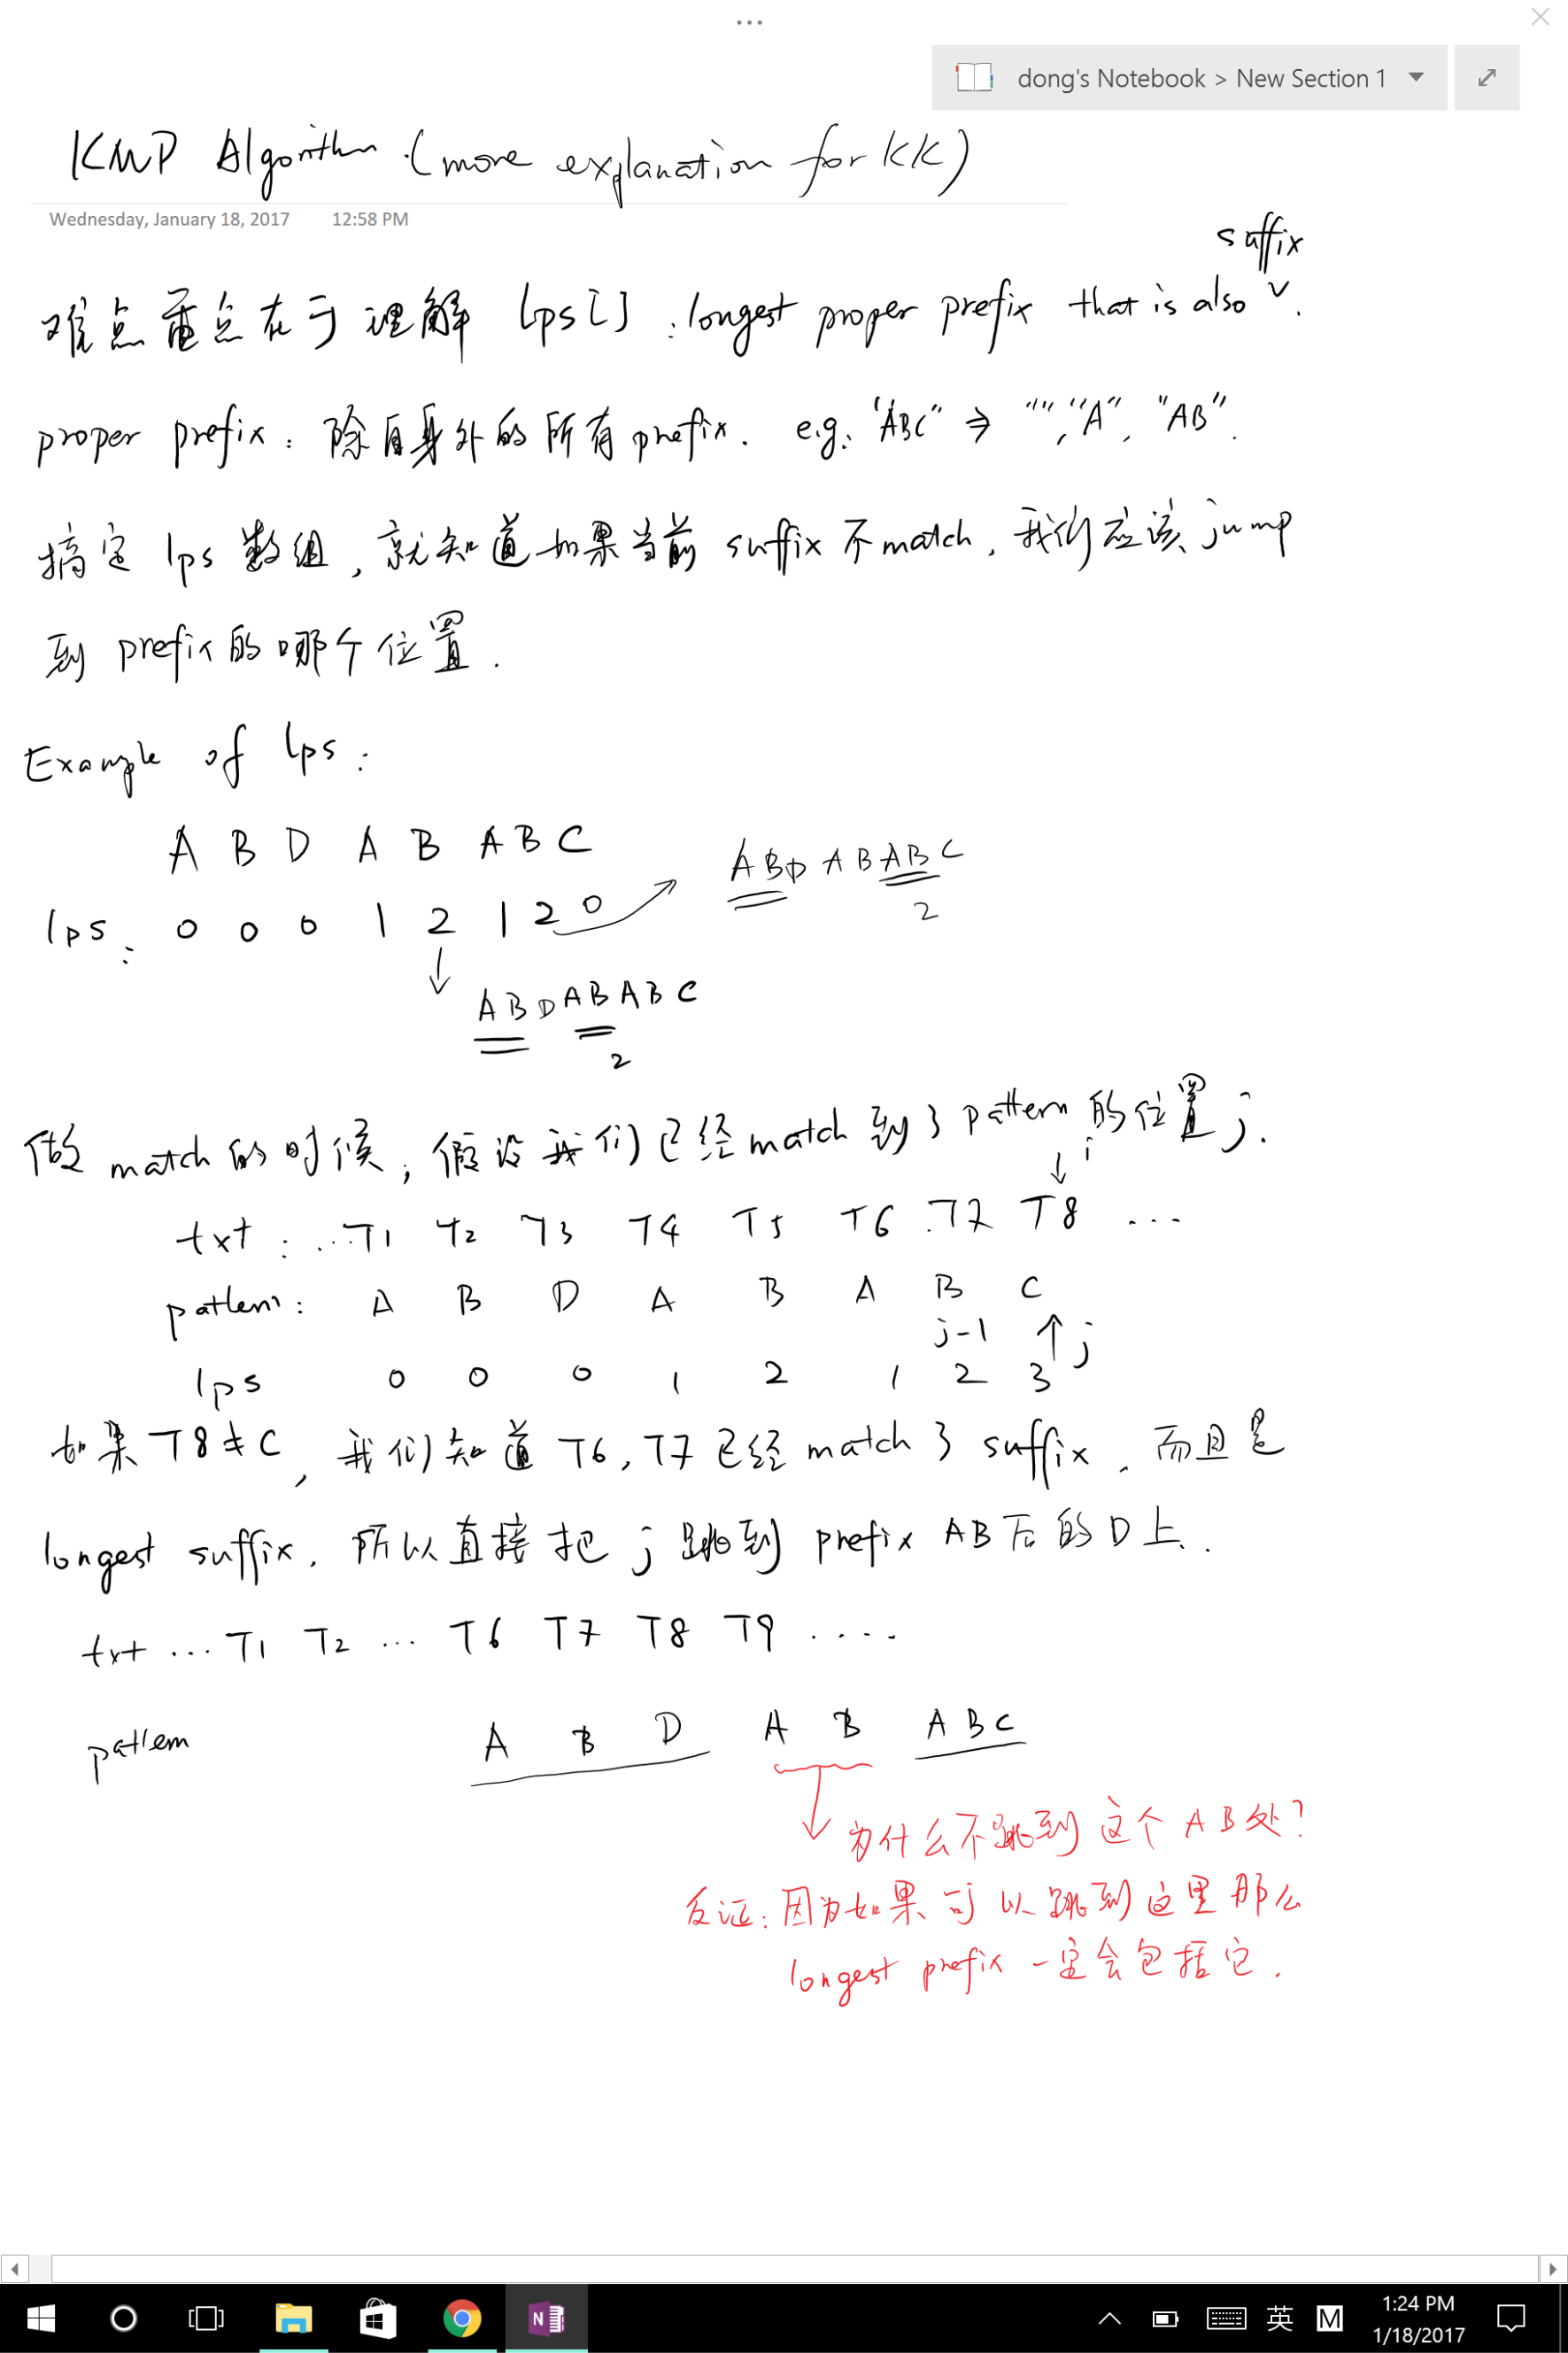 dong's Notebook > New Section 1
KMP Algorithm (more explanation for KK)
Wednesday, January 18, 2017 12:58 PM
suffix
难点重点在于理解 lps[] : longest proper prefix that is also ∨.
proper prefix: 除自身外的所有 prefix. e.g. "ABC" ⇒ "", "A", "AB".
搞定 lps 数组, 就知道如果当前 suffix 不 match, 我们应该 jump
到 prefix 的哪个位置.
Example of lps:
A B D A B A B C
lps: 0 0 0 1 2 1 2 0
A B D A B A B C
2
A B D A B A B C
2
做 match 的时候, 假设我们已经 match 到了 pattern 的位置 j.
↓ i
txt: ... T1 T2 T3 T4 T5 T6 T7 T8 ...
pattern: A B D A B A B C
j-1 ↑ j
lps 0 0 0 1 2 1 2 3
如果 T8 ≠ C, 我们知道 T6, T7 已经 match 了 suffix, 而且是
longest suffix, 所以直接把 j 跳到 prefix AB 后的 D 上.
txt ... T1 T2 ... T6 T7 T8 T9 ....
pattern A B D A B A B C
为什么不跳到这个 AB 处?
反证: 因为如果可以跳到这里那么
longest prefix 一定会包括它.
英 M 1:24 PM
1/18/2017